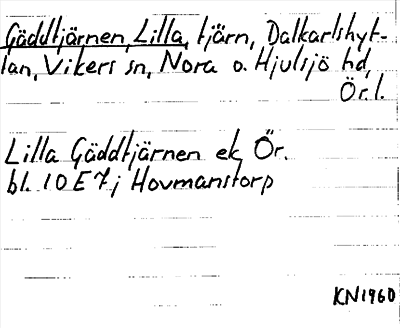 Gäddtjärnen, Lilla, tjärn, Dalkarlshyt-
tan, Vikers sn, Nora o. Hjulsjö hd,
Ör. l.
Lilla Gäddtjärnen ek Ör.
bl. 10E7j Hovmanstorp
KN1960